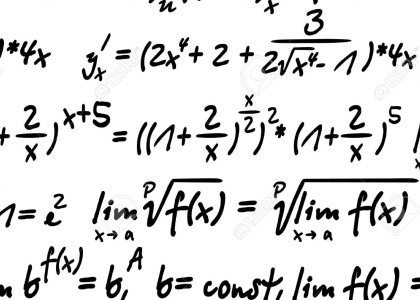 )*4x   y'ₓ = (2x⁴ + 2 + 3/(2√(x⁴ - 1)))*4x
+ 2/x)^(x+5) = ((1 + 2/x)^(x/2))²* (1 + 2/x)⁵
1 = e²   lim_(x→a) ᵖ√f(x) = ᵖ√(lim_(x→a) f(x))
b^f(x) = b^A, b = const, lim f(x) =